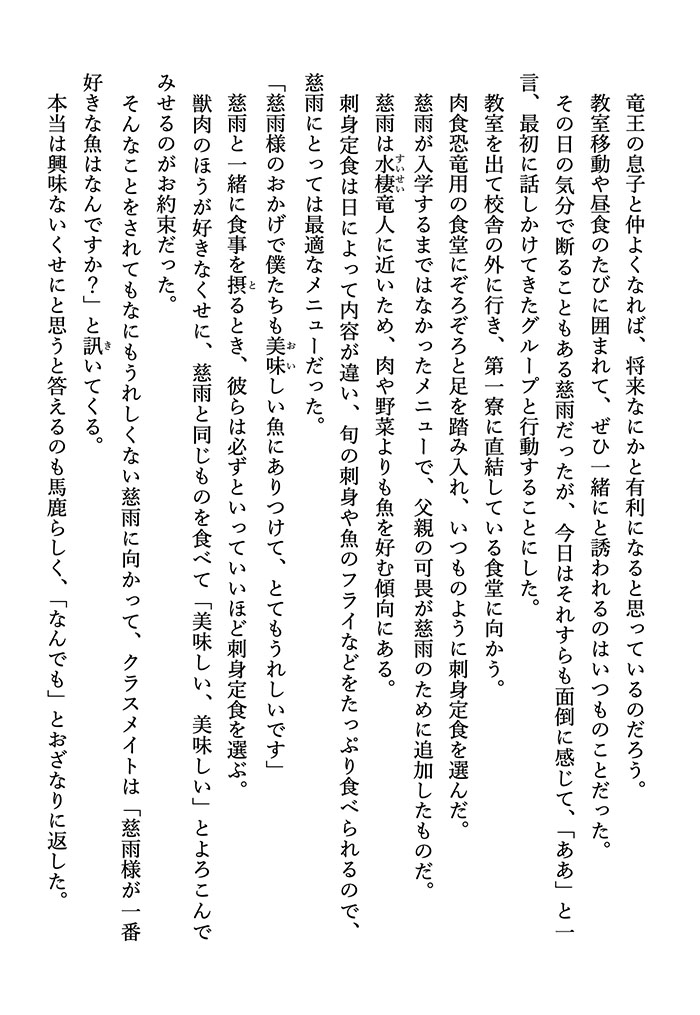 竜王の息子と仲よくなれば、将来なにかと有利になると思っているのだろう。
教室移動や昼食のたびに囲まれて、ぜひ一緒にと誘われるのはいつものことだった。
その日の気分で断ることもある慈雨だったが、今日はそれすらも面倒に感じて、「ああ」と一
言、最初に話しかけてきたグループと行動することにした。
教室を出て校舎の外に行き、第一寮に直結している食堂に向かう。
肉食恐竜用の食堂にぞろぞろと足を踏み入れ、いつものように刺身定食を選んだ。
慈雨が入学するまではなかったメニューで、父親の可畏が慈雨のために追加したものだ。
慈雨は水棲竜人に近いため、肉や野菜よりも魚を好む傾向にある。
刺身定食は日によって内容が違い、旬の刺身や魚のフライなどをたっぷり食べられるので、
慈雨にとっては最適なメニューだった。
「慈雨様のおかげで僕たちも美味しい魚にありつけて、とてもうれしいです」
慈雨と一緒に食事を摂るとき、彼らは必ずといっていいほど刺身定食を選ぶ。
獣肉のほうが好きなくせに、慈雨と同じものを食べて「美味しい、美味しい」とよろこんで
みせるのがお約束だった。
そんなことをされてもなにもうれしくない慈雨に向かって、クラスメイトは「慈雨様が一番
好きな魚はなんですか？」と訊いてくる。
本当は興味ないくせにと思うと答えるのも馬鹿らしく、「なんでも」とおざなりに返した。